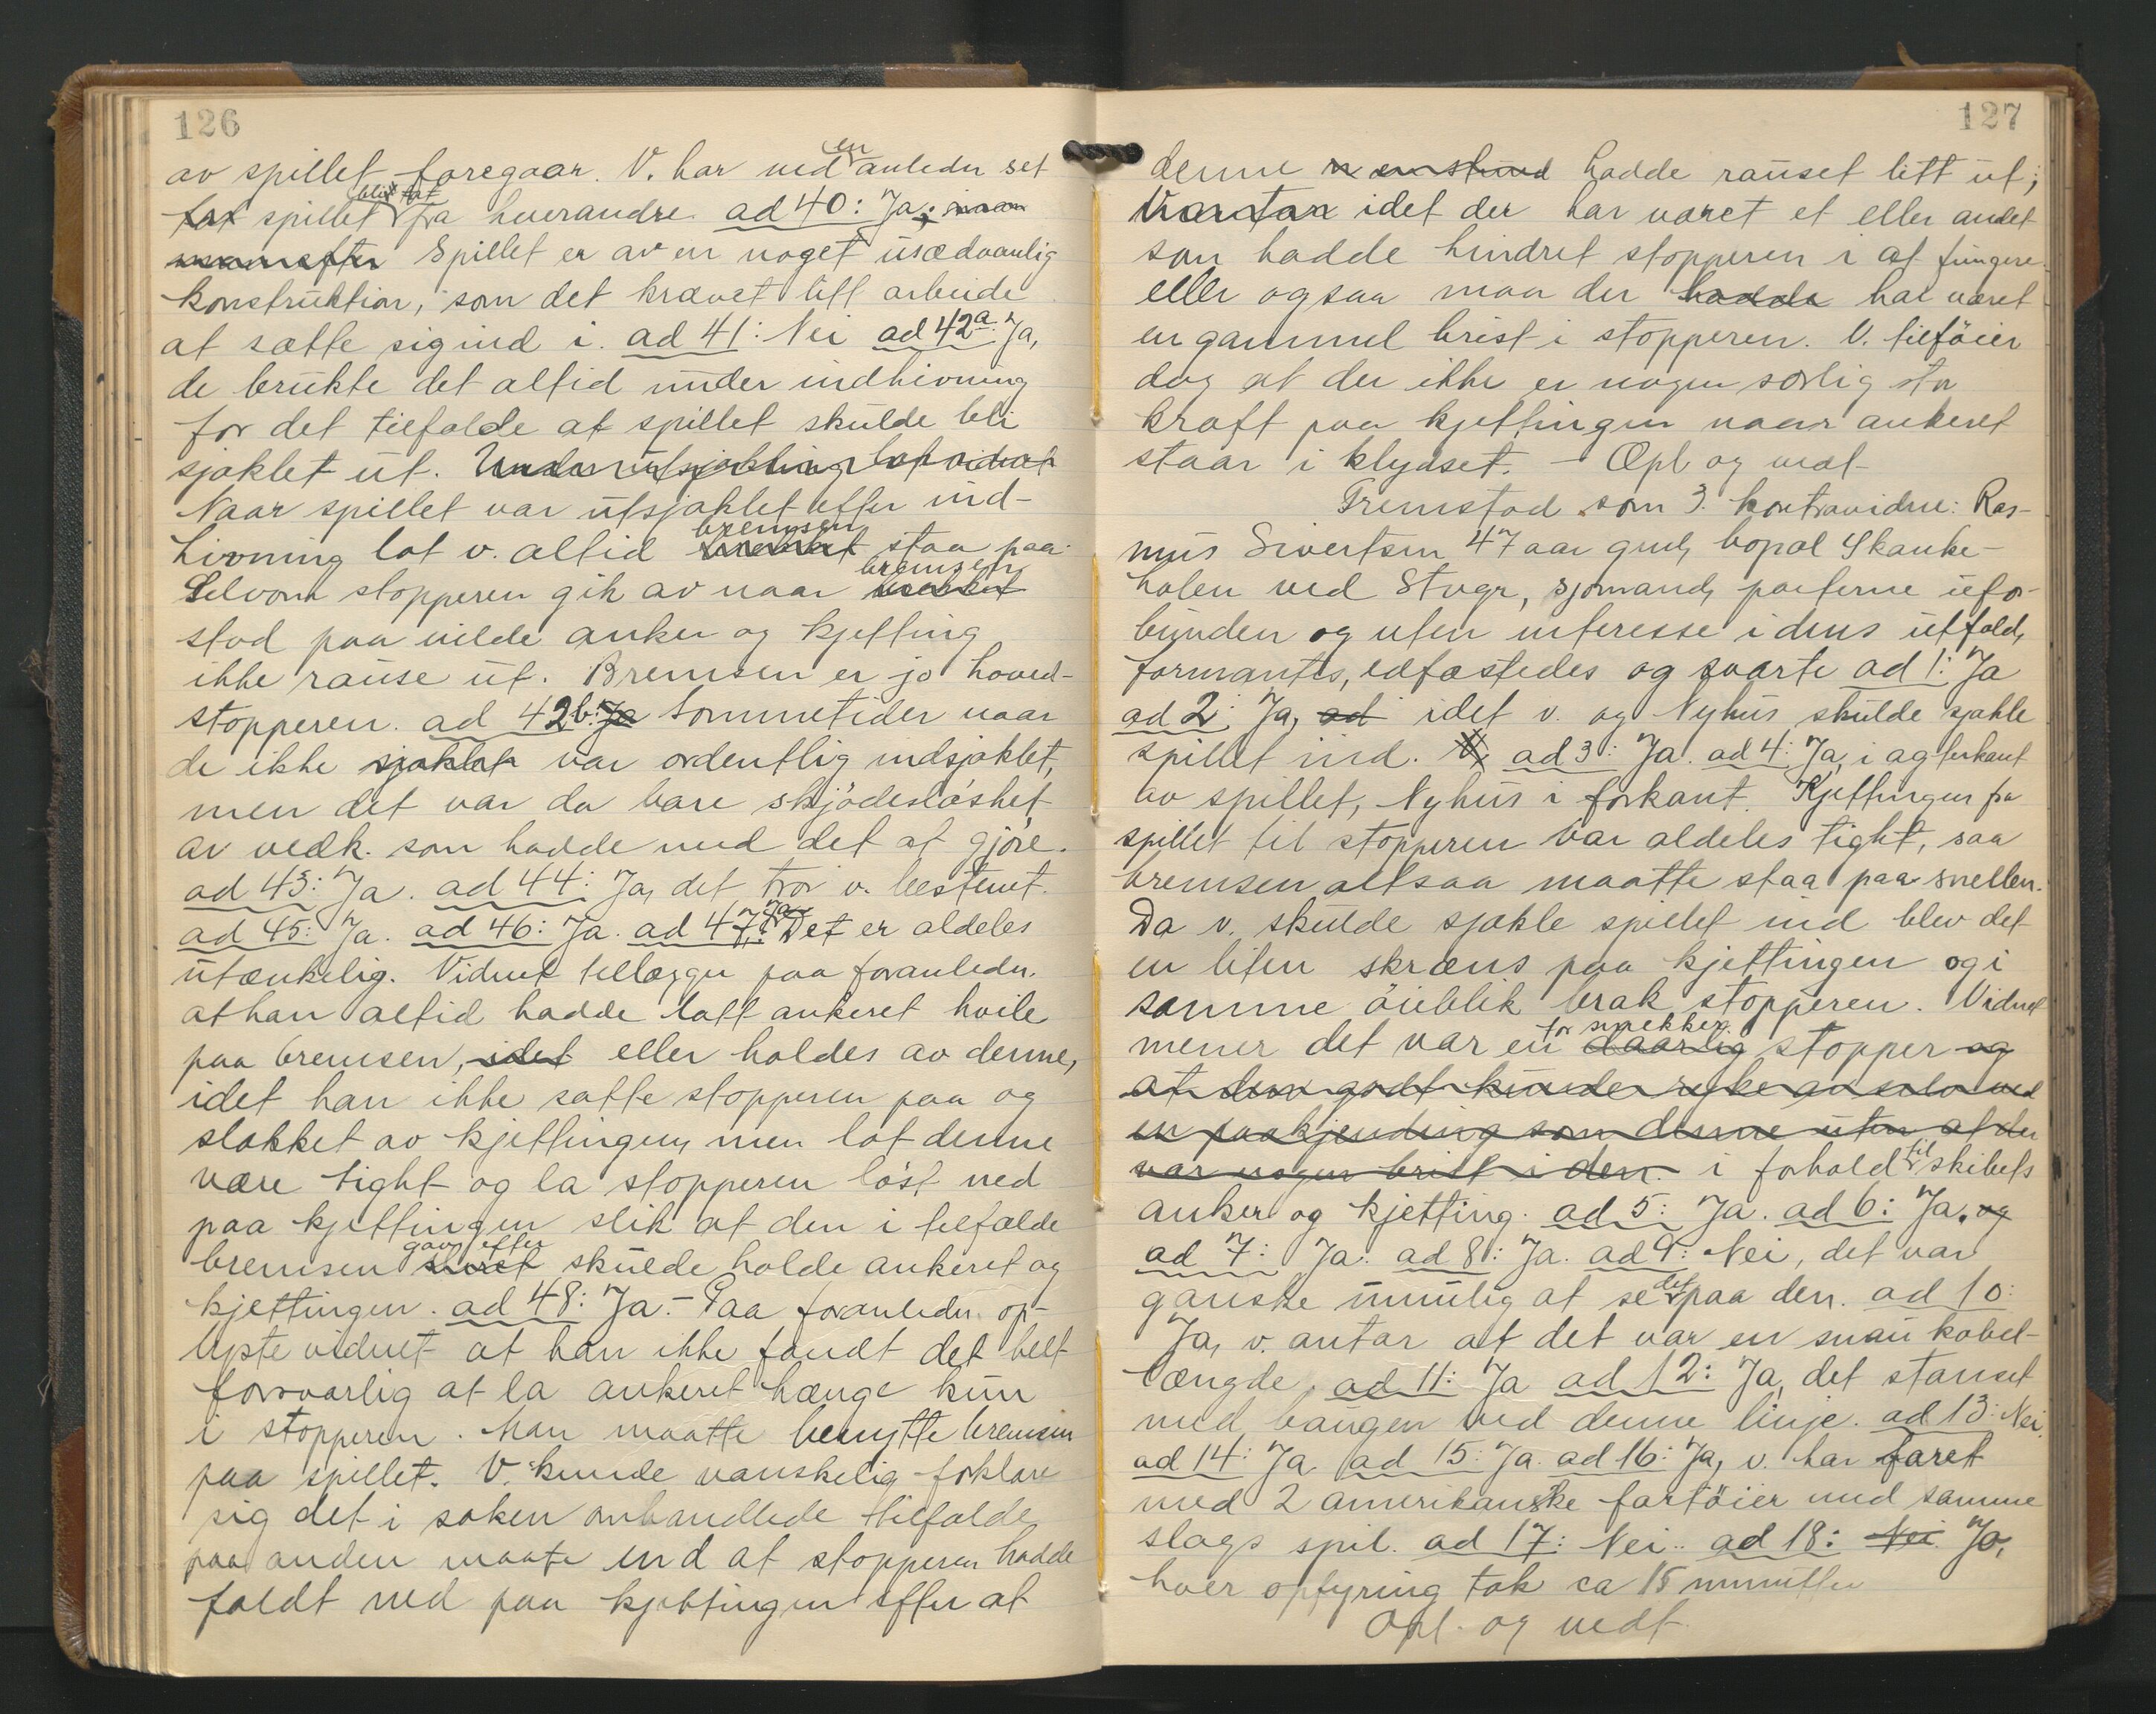 126
av spillet foregaar. V. har ved en anledn set
tat spillet blit tat fra hverandre. ad 40: Ja;
Spillet er av en noget usædvanlig
konstruktion, som det krævet litt arbeide
at sætte sig ind i. ad 41: Nei ad 42a: Ja,
de brukte det altid under indhivning
for det tilfælde at spillet skulde bli
sjaklet ut. Under utsjakling lot vidnet
Naar spillet var utsjaklet efter ind-
hivning lot v. altid bremsen staa paa.
Selvom stopperen gik av naar bremsen
stod paa vilde anker og kjetting
ikke rause ut. Bremsen er jo hoved-
stopperen. ad 42b: Ja Sommetider naar
de ikke sjaklet var ordentlig indsjaklet,
men det var da bare skjødesløshet
av vedk. som hadde med det at gjøre.
ad 43: Ja. ad 44: Ja, det tror v. bestemt.
ad 45: Ja. ad 46: Ja. ad 47: Ja Det er aldeles
utænkelig. Vidnet tillægger paa foranledn.
at han altid hadde latt ankeret hvile
paa bremsen, idet eller holdes av denne,
idet han ikke satte stopperen paa og
slakket av kjettingen, men lot denne
være tight og la stopperen løst ned
paa kjettingen slik at den i tilfælde
bremsen gav efter skulde holde ankeret og
kjettingen. ad 48: Ja. – Paa foranledn. op-
lyste vidnet at han ikke fandt det helt
forsvarlig at la ankeret hænge kun
i stopperen. Man maatte benytte bremsen
paa spillet. V. kunde vanskelig forklare
sig det i saken omhandlede tilfælde
paa anden maate end at stopperen hadde
faldt ned paa kjettingen efter at
127
denne en stund hadde rauset litt ut;
idet der har været et eller andet
som hadde hindret stopperen i at fungere
eller ogsaa maa der hadde ha været
en gammel brist i stopperen. V. tilføier
dog at der ikke er nogen særlig stor
kraft paa kjettingen naar ankeret
staar i klydset. – Opl og vedt
Fremstod som 3. kontravidne: Ras-
mus Sivertsen 47 aar gml, bopæl Skanke-
holen ved Stvgr, sjømand, parterne ufor-
bunden og uten interesse i dens utfald,
formantes, edfæstedes og svarte ad 1: Ja
ad 2: Ja, ad idet v. og Nyhus skulde sjakle
spillet ind. V. ad 3: Ja. ad 4: Ja, i agterkant
av spillet, Nyhus i forkant. Kjettingen fra
spillet til stopperen var aldeles tight, saa
bremsen altsaa maatte staa paa snellen.
Da v. skulde sjakle spillet ind blev det
en liten skræns paa kjettingen og i
samme øieblik brak stopperen. Vidnet
mener det var en for smekker daarlig stopper og
at den godt kunde ryke av selv ved
en paakjending som denne uten at der
var nogen brist i den. i forhold til skibets
anker og kjetting. ad 5: Ja. ad 6: Ja. og
ad 7: Ja. ad 8: Ja. ad 9: Nei, det var
ganske umulig at se det paa den. ad 10:
Ja, v. antar at det var en snau kabel-
længde. ad 11: Ja ad 12: Ja, det stanset
med baugen ved denne linje. ad 13: Nei.
ad 14: Ja. ad 15: Ja. ad 16: Ja, v. har faret
med 2 amerikanske fartøier med samme
slags spil. ad 17: Nei.. ad 18: Nei. Ja,
hver opfyring tok ca 15 minutter
Opl. og vedt.